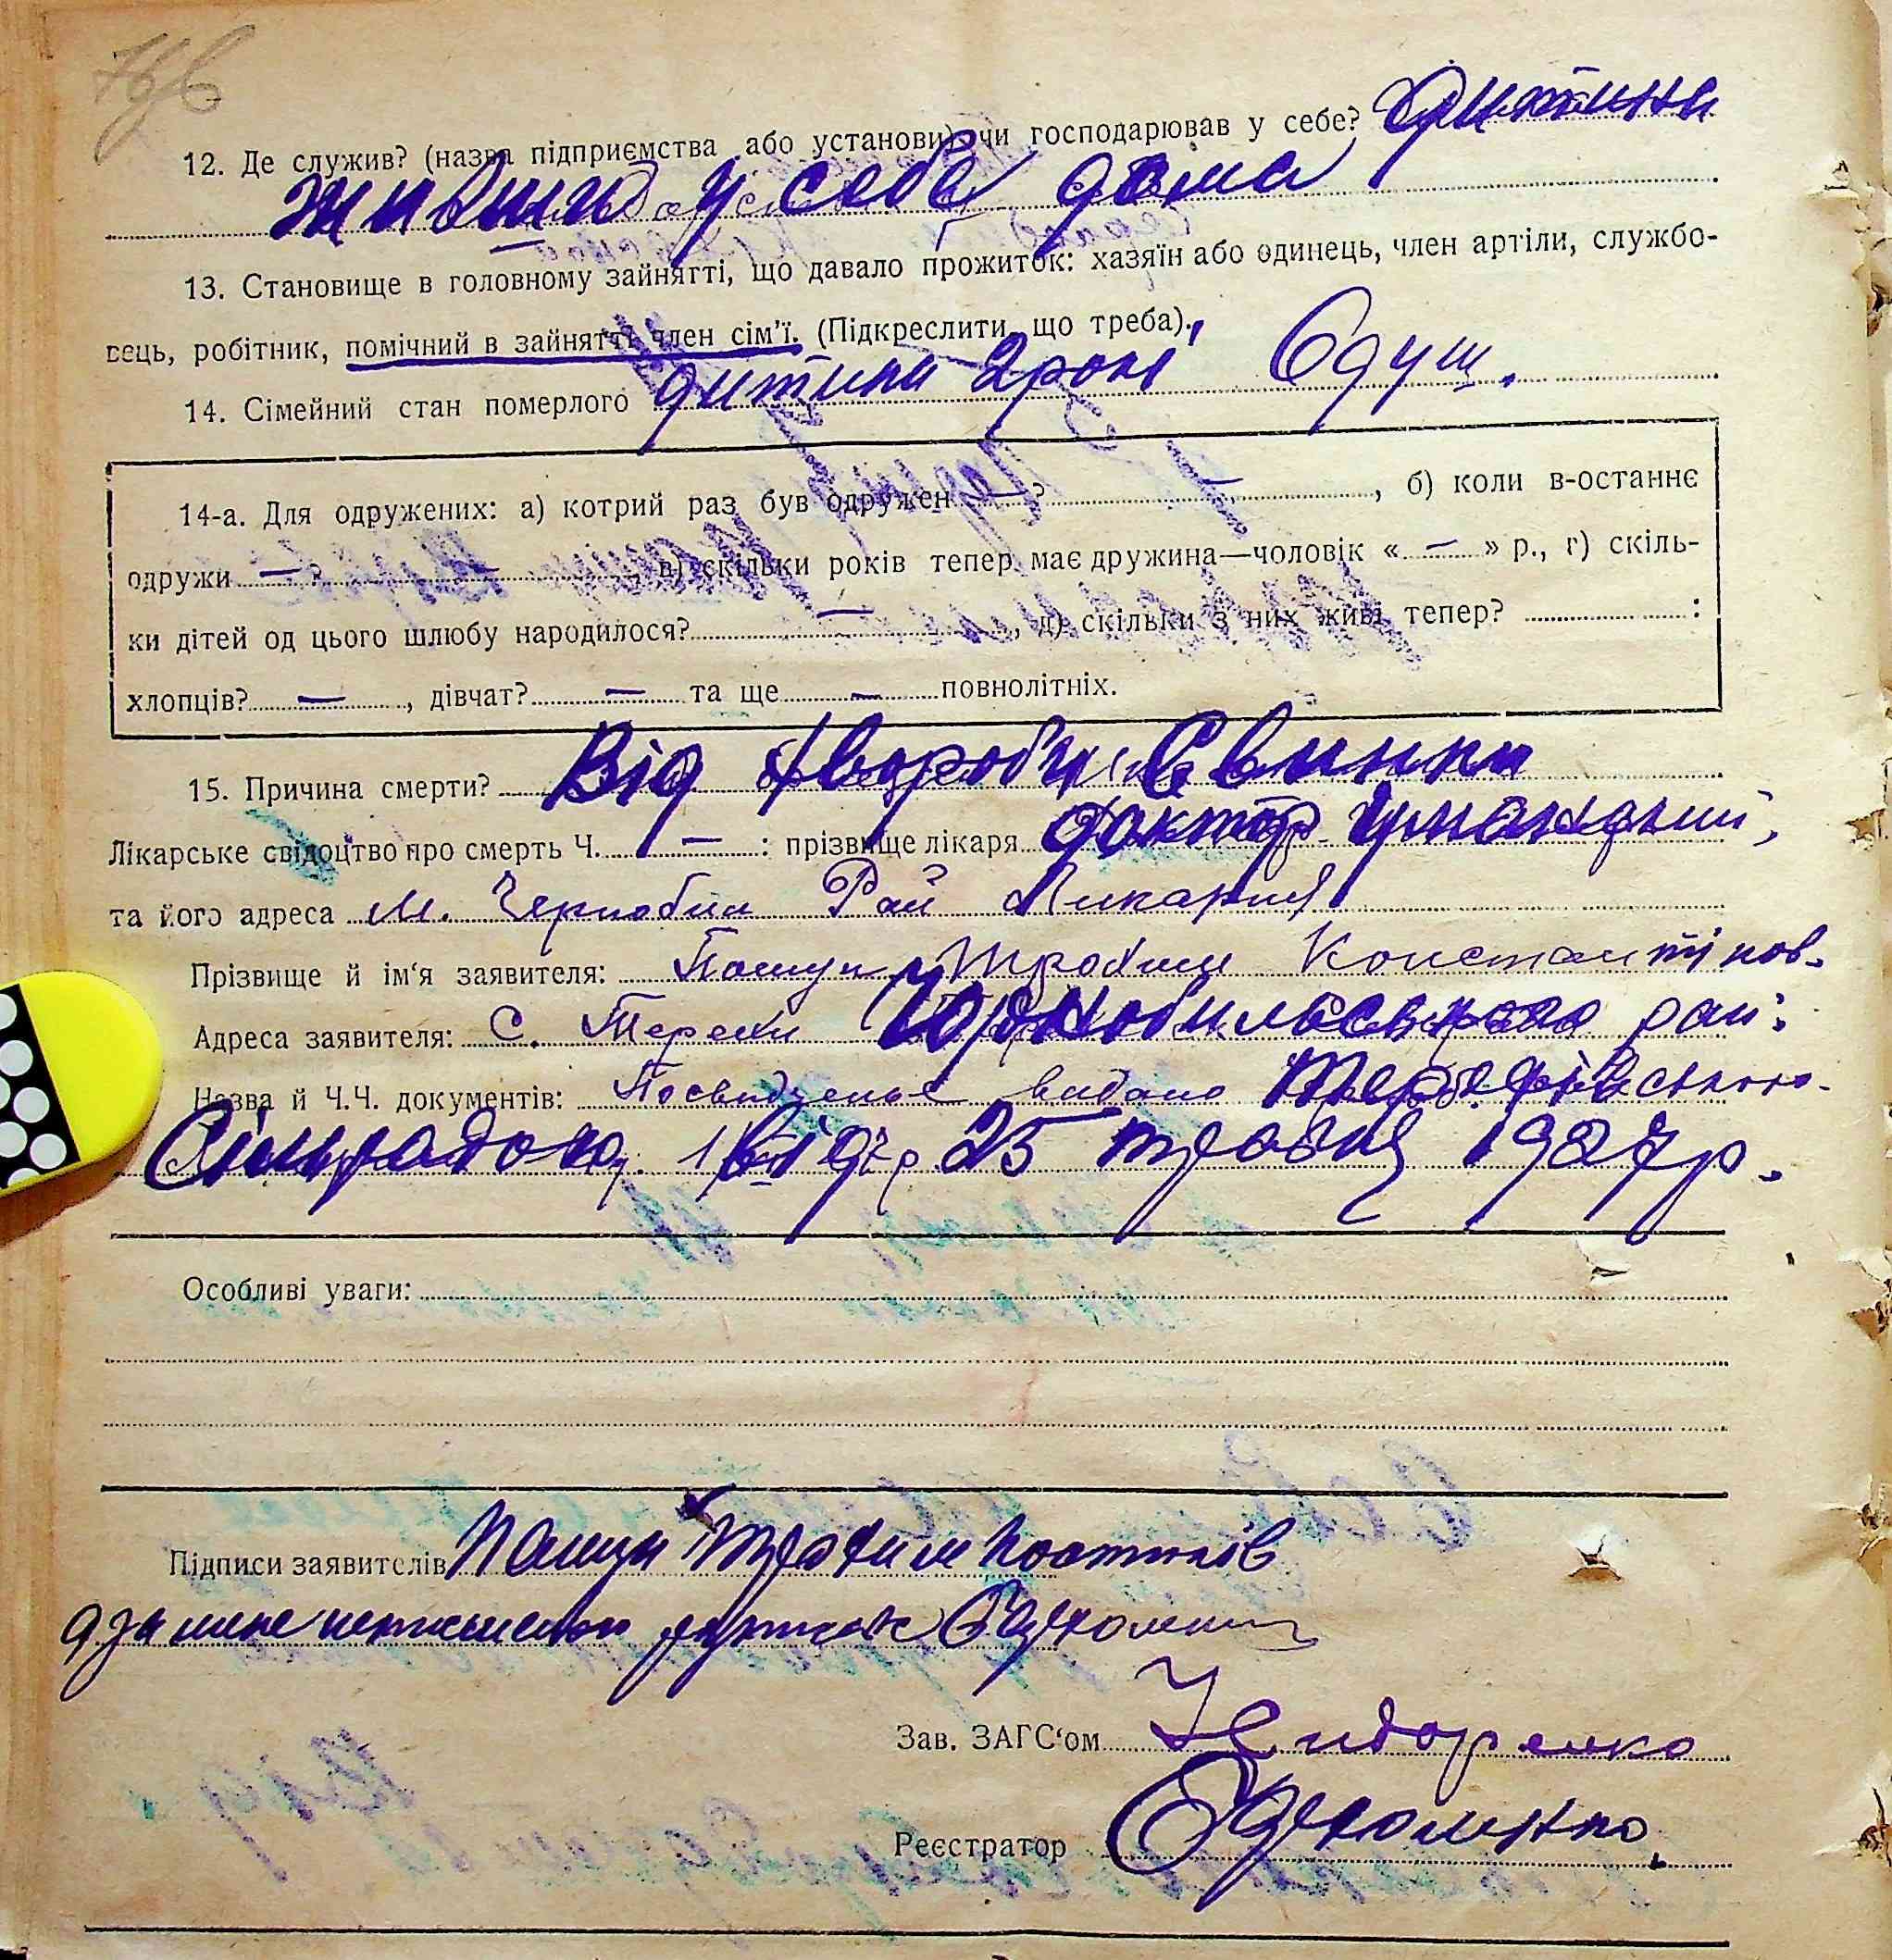 12. Де служив? (назва підприємства або установи) чи господарював у себе? Дитина
живши у себе дома
13. Становище в головному зайнятті, що давало прожиток: хазяїн або одинець, член артіли, службо-
вець, робітник, помічний в зайнятті член сім'ї. (Підкреслити, що треба).
14. Сімейний стан померлого дитина 2 рокі 6 душ.
14-а. Для одружених: а) котрий раз був одружен — ? —, б) коли в-останнє
одружи — ? —, в) скільки років тепер має дружина—чоловік « — » р., г) скіль-
ки дітей од цього шлюбу народилося? —, д) скільки з них живі тепер? :
хлопців? —, дівчат? — та ще — повнолітніх.
15. Причина смерти? Від хвороби Свинки
Лікарське свідоцтво про смерть Ч. — : прізвище лікаря доктор
та його адреса м. Чернобил Рай Ликарня
Прізвище й ім'я заявителя: Пашун Трохим Константінов.
Адреса заявителя: С. Терехи Чорнобильського рай.
Назва й Ч.Ч. документів: Посвидченье видано
Сільрадою від 25 травня 1927 р.
Особливі уваги:
Підписи заявителів Пашун Трохим
Зав. ЗАГС'ом
Реєстратор